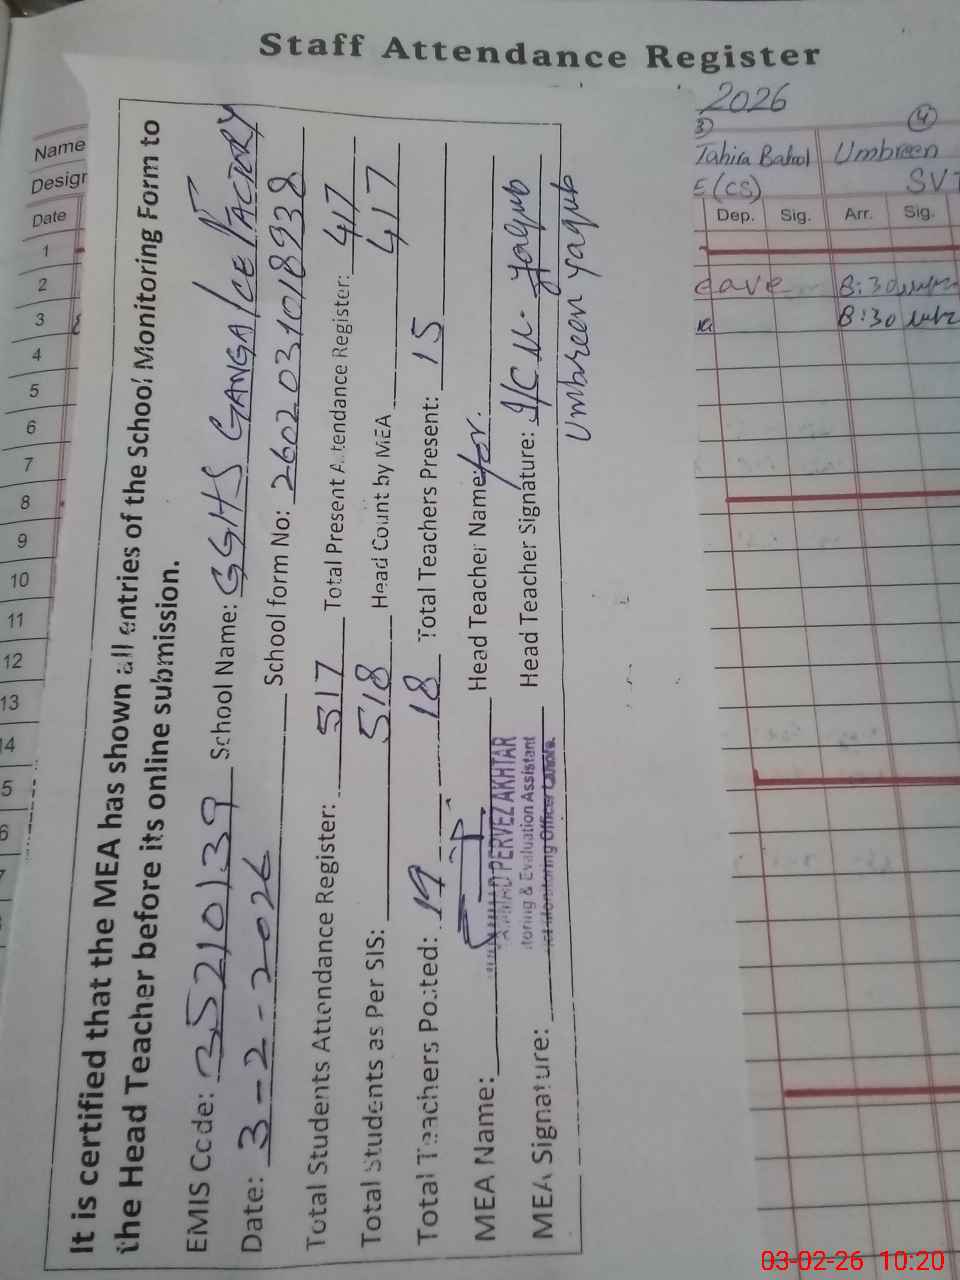 Staff Attendance Register
2026
3 4
Name Tahira Batool Umbreen
Design E(CS) SVT
Date Dep. Sig. Arr. Sig.
1
2 eave 8:30
3 8:30
4
5
6
7
8
9
10
11
12
13
14
5
6
7
It is certified that the MEA has shown all entries of the School Monitoring Form to
the Head Teacher before its online submission.
EMIS Code: 35210139 School Name: GGHS GANGA ICE FACTORY
Date: 3-2-2026 School form No: 26020310189 38
Total Students Attendance Register: 517 Total Present Attendance Register: 417
Total Students as Per SIS: 518 Head Count by MEA 417
Total Teachers Posted: 19 18 Total Teachers Present: 15
MEA Name: Head Teacher Name: for.
MEA Signature: Head Teacher Signature: I/C U. Yaqub
Umbreen Yaqub
PERVEZ AKHTAR
toring & Evaluation Assistant
Monitoring Officer Lahore.
03-02-26 10:20